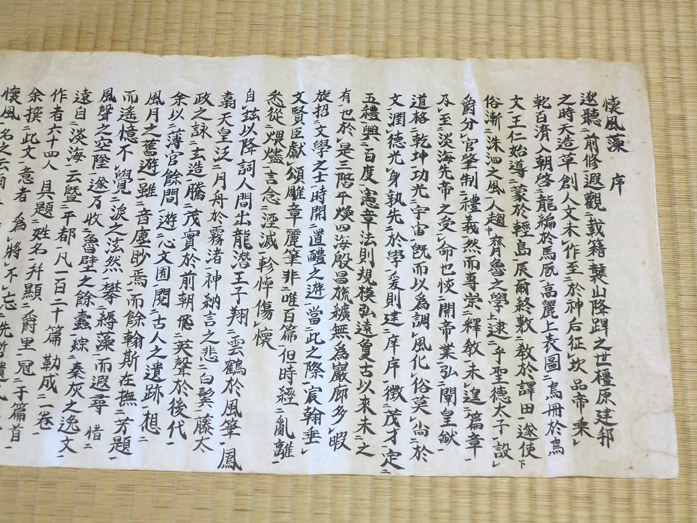 懷風藻 序
逖聽前修遐觀載籍襲山降蹕之世橿原建邦
之時天造草創人文未作至於神后征坎品帝乘
乾百濟入朝啓龍編於馬厩高麗上表圖烏冊於鳥
文王仁始導蒙於輕島辰爾終敷教於譯田遂使
俗漸洙泗之風人趨齊魯之學逮乎聖德太子設
爵分官肇制禮義然而專崇釋教未遑篇章
及至淡海先帝之受命也恢開帝業弘闡皇猷
道格乾坤功光宇宙既而以爲調風化俗莫尚於
文潤德光身孰先於學爰則建庠序徴茂才定
五禮興百度憲章法則規模弘遠夐古以來未之
有也於是三階平煥四海殷昌旒纊無爲巖廊多暇
旋招文學之士時開置醴之遊當此之際宸翰垂
文賢臣獻頌雕章麗筆非唯百篇但時經亂離
悉從煨燼言念湮滅軫悼傷懷
自茲以降詞人間出龍潛王子翔雲鶴於風筆鳳
翥天皇泛月舟於霧渚神納言之悲白鬢藤太
政之詠玄造騰茂實於前朝飛英聲於後代
余以薄官餘間遊心文囿閲古人之遺跡想
風月之舊遊雖音塵眇焉而餘翰斯在撫芳題
而遙憶不覺淚之泫然攀縟藻而遐尋惜
風聲之空墜遂乃收魯壁之餘蠹綜秦灰之逸文
遠自淡海云曁平都凡一百二十篇勒成一卷
作者六十四人具題姓名并顯爵里冠于篇首
余撰此文意者爲將不忘先哲遺
懷風名之云